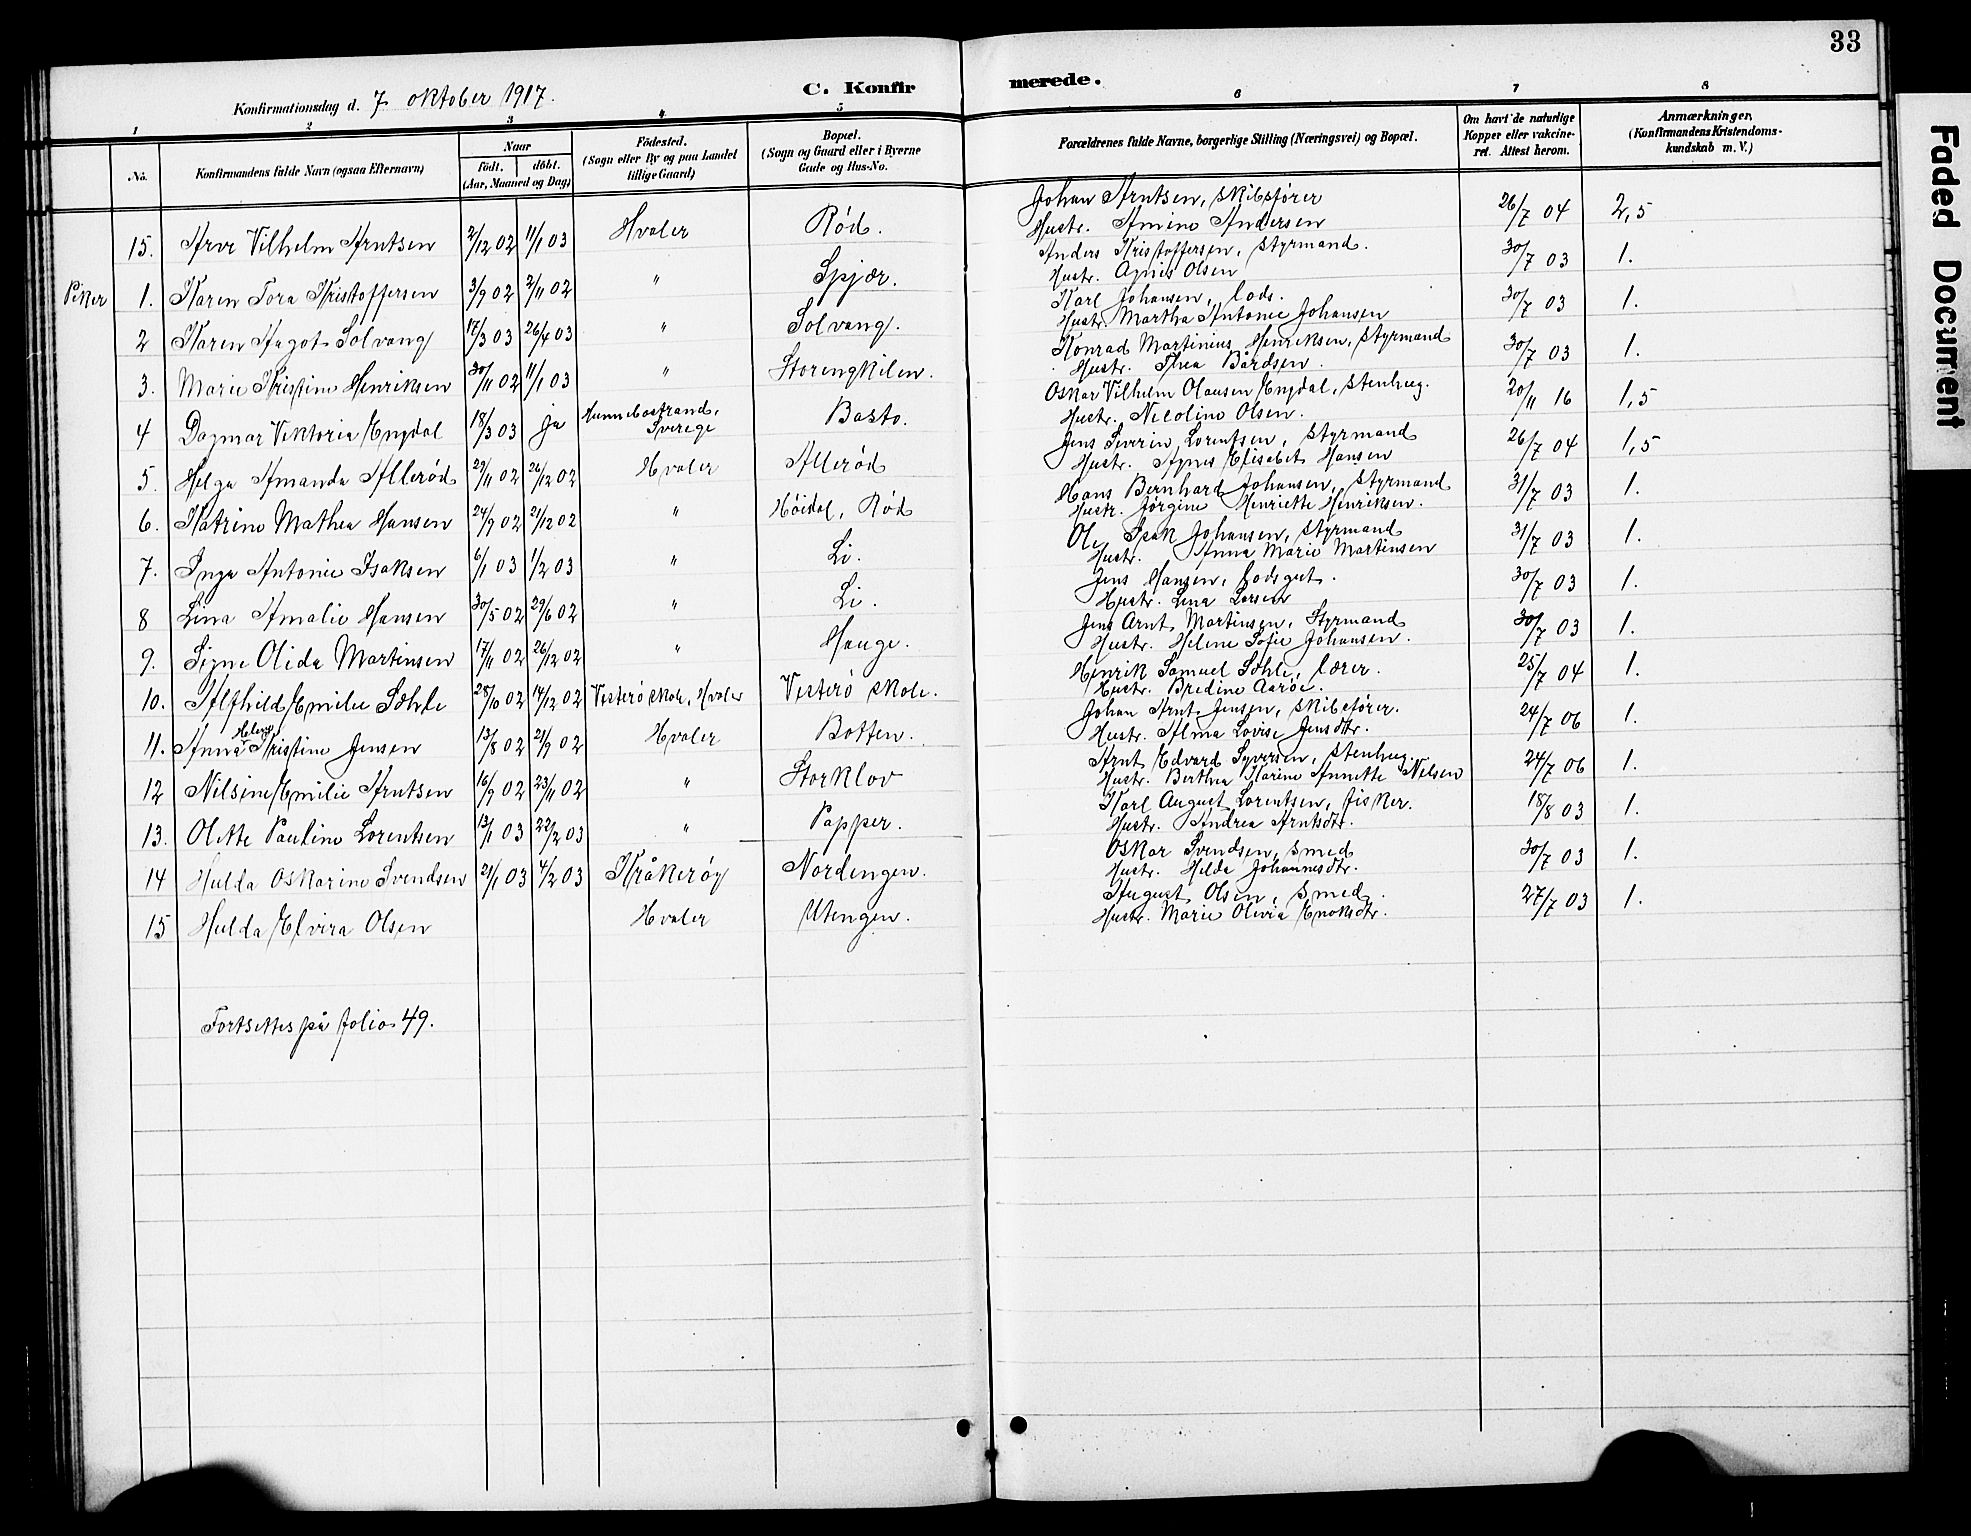 33
C. Konfirmerede.
Konfirmationsdag d. 7 oktober 1917.
1 2 3 4 5 6 7 8
No.
Konfirmandens fulde Navn (ogsaa Efternavn)
Naar
födt. döbt.
(Aar, Maaned og Dag)
Födested.
(Sogn eller By og paa Landet
tillige Gaard)
Bopæl.
(Sogn og Gaard eller i Byerne
Gade og Hus-No.
Forældrenes fulde Navne, borgerlige Stilling (Næringsvei) og Bopæl.
Om havt de naturlige
Kopper eller vakcine-
ret. Attest herom.
Anmærkninger.
(Konfirmandens Kristendoms-
kundskab m. V.)
15. Arve Vilhelm Arntsen 2/12 02 11/1 03 Hvaler Rød. Johan Arntsen, skibsfører 26/7 04 2,5
Hustr. Amine Andersen
Piker 1. Karen Tora Kristoffersen 3/9 02 2/11 02 " Spjær. Anders Kristoffersen, styrmand. 30/7 03 1.
Hustr. Agnes Olsen
2 Karen Aagot Solvang 17/3 03 26/4 03 " Solvang. Karl Johansen, lods. 30/7 03 1.
Hustr. Martha Antonie Johansen
3. Marie Kristine Henriksen 30/11 02 11/1 03 " Storengkilen. Konrad Martinius Henriksen, styrmand 30/7 03 1.
Hustr. Thea Bårdsen.
4 Dagmar Viktoria Engdal 18/3 03 ja Hunnebostrand, Sverige Basto. Oskar Vilhelm Olausen Engdal, stenhug. 20/11 16 1,5
Hustr. Nicoline Olsen.
5. Helga Amanda Allerød 29/11 02 26/12 02 Hvaler Allerød Jens Severin Lorentsen, styrmand 26/7 04 1,5
Hustr. Agnes Elisabet Hansen
6. Katrine Mathea Hansen 24/9 02 21/12 02 " Höidal, Rød Hans Bernhard Johansen, styrmand 31/7 03 1.
Hustr. Jørgine Henriette Henriksen.
7. Inga Antonie Isaksen 6/1 03 1/2 03 " Li. Ole Isak Johansen, styrmand 31/7 03 1.
Hustr. Anna Marie Martinsen
8 Lina Amalie Hansen 30/5 02 29/6 02 " Li. Jens Hansen, lodsgut. 30/7 03 1.
Hustr. Lena Larsen
9. Signe Olida Martinsen 17/11 02 26/12 02 " Hauge. Jens Arnt Martinsen, Styrmand 30/7 03 1.
Hustr. Helene Sofie Johansen.
10. Alfhild Emilie Sæhle 28/10 02 14/12 02 Vesterö skole, Hvaler Vesterö skole. Henrik Samuel Sæhle, lærer. 25/7 04 1.
Hustr. Bredine Aarøe.
11. Anna Helene Kristine Jensen 13/8 02 21/9 02 Hvaler Botten. Johan Arnt Jensen, skibsfører. 24/7 06 1.
Hustr. Alma Lovise Jensdtr.
12 Nilsine Emilie Arntsen 16/9 02 23/11 02 " Storklov Arnt Edvard Syversen, stenhug. 24/7 06 1.
Hustr. Berthea Karine Annette Nilsen
13. Olette Pauline Lorentsen 13/1 03 22/2 03 " Papper. Karl August Lorentsen, fisker. 18/8 03 1.
Hustr. Andrea Arntsdtr.
14 Hulda Oskarine Svendsen 21/1 03 4/2 03 Kråkerøy Nordengen. Oskar Svendsen, smed 30/7 03 1.
Hustr. Hilda Johannesdtr.
15 Hulda Elvira Olsen Hvaler Utengen. August Olsen, Smed. 27/7 03 1.
Hustr. Marie Olivia Enoksdtr.
Fortsettes på folio 49.
Faded Document